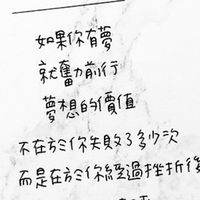 如果你有夢
就奮力前行
夢想的價值
不在於你失敗了多少次
而是在於你經過挫折後